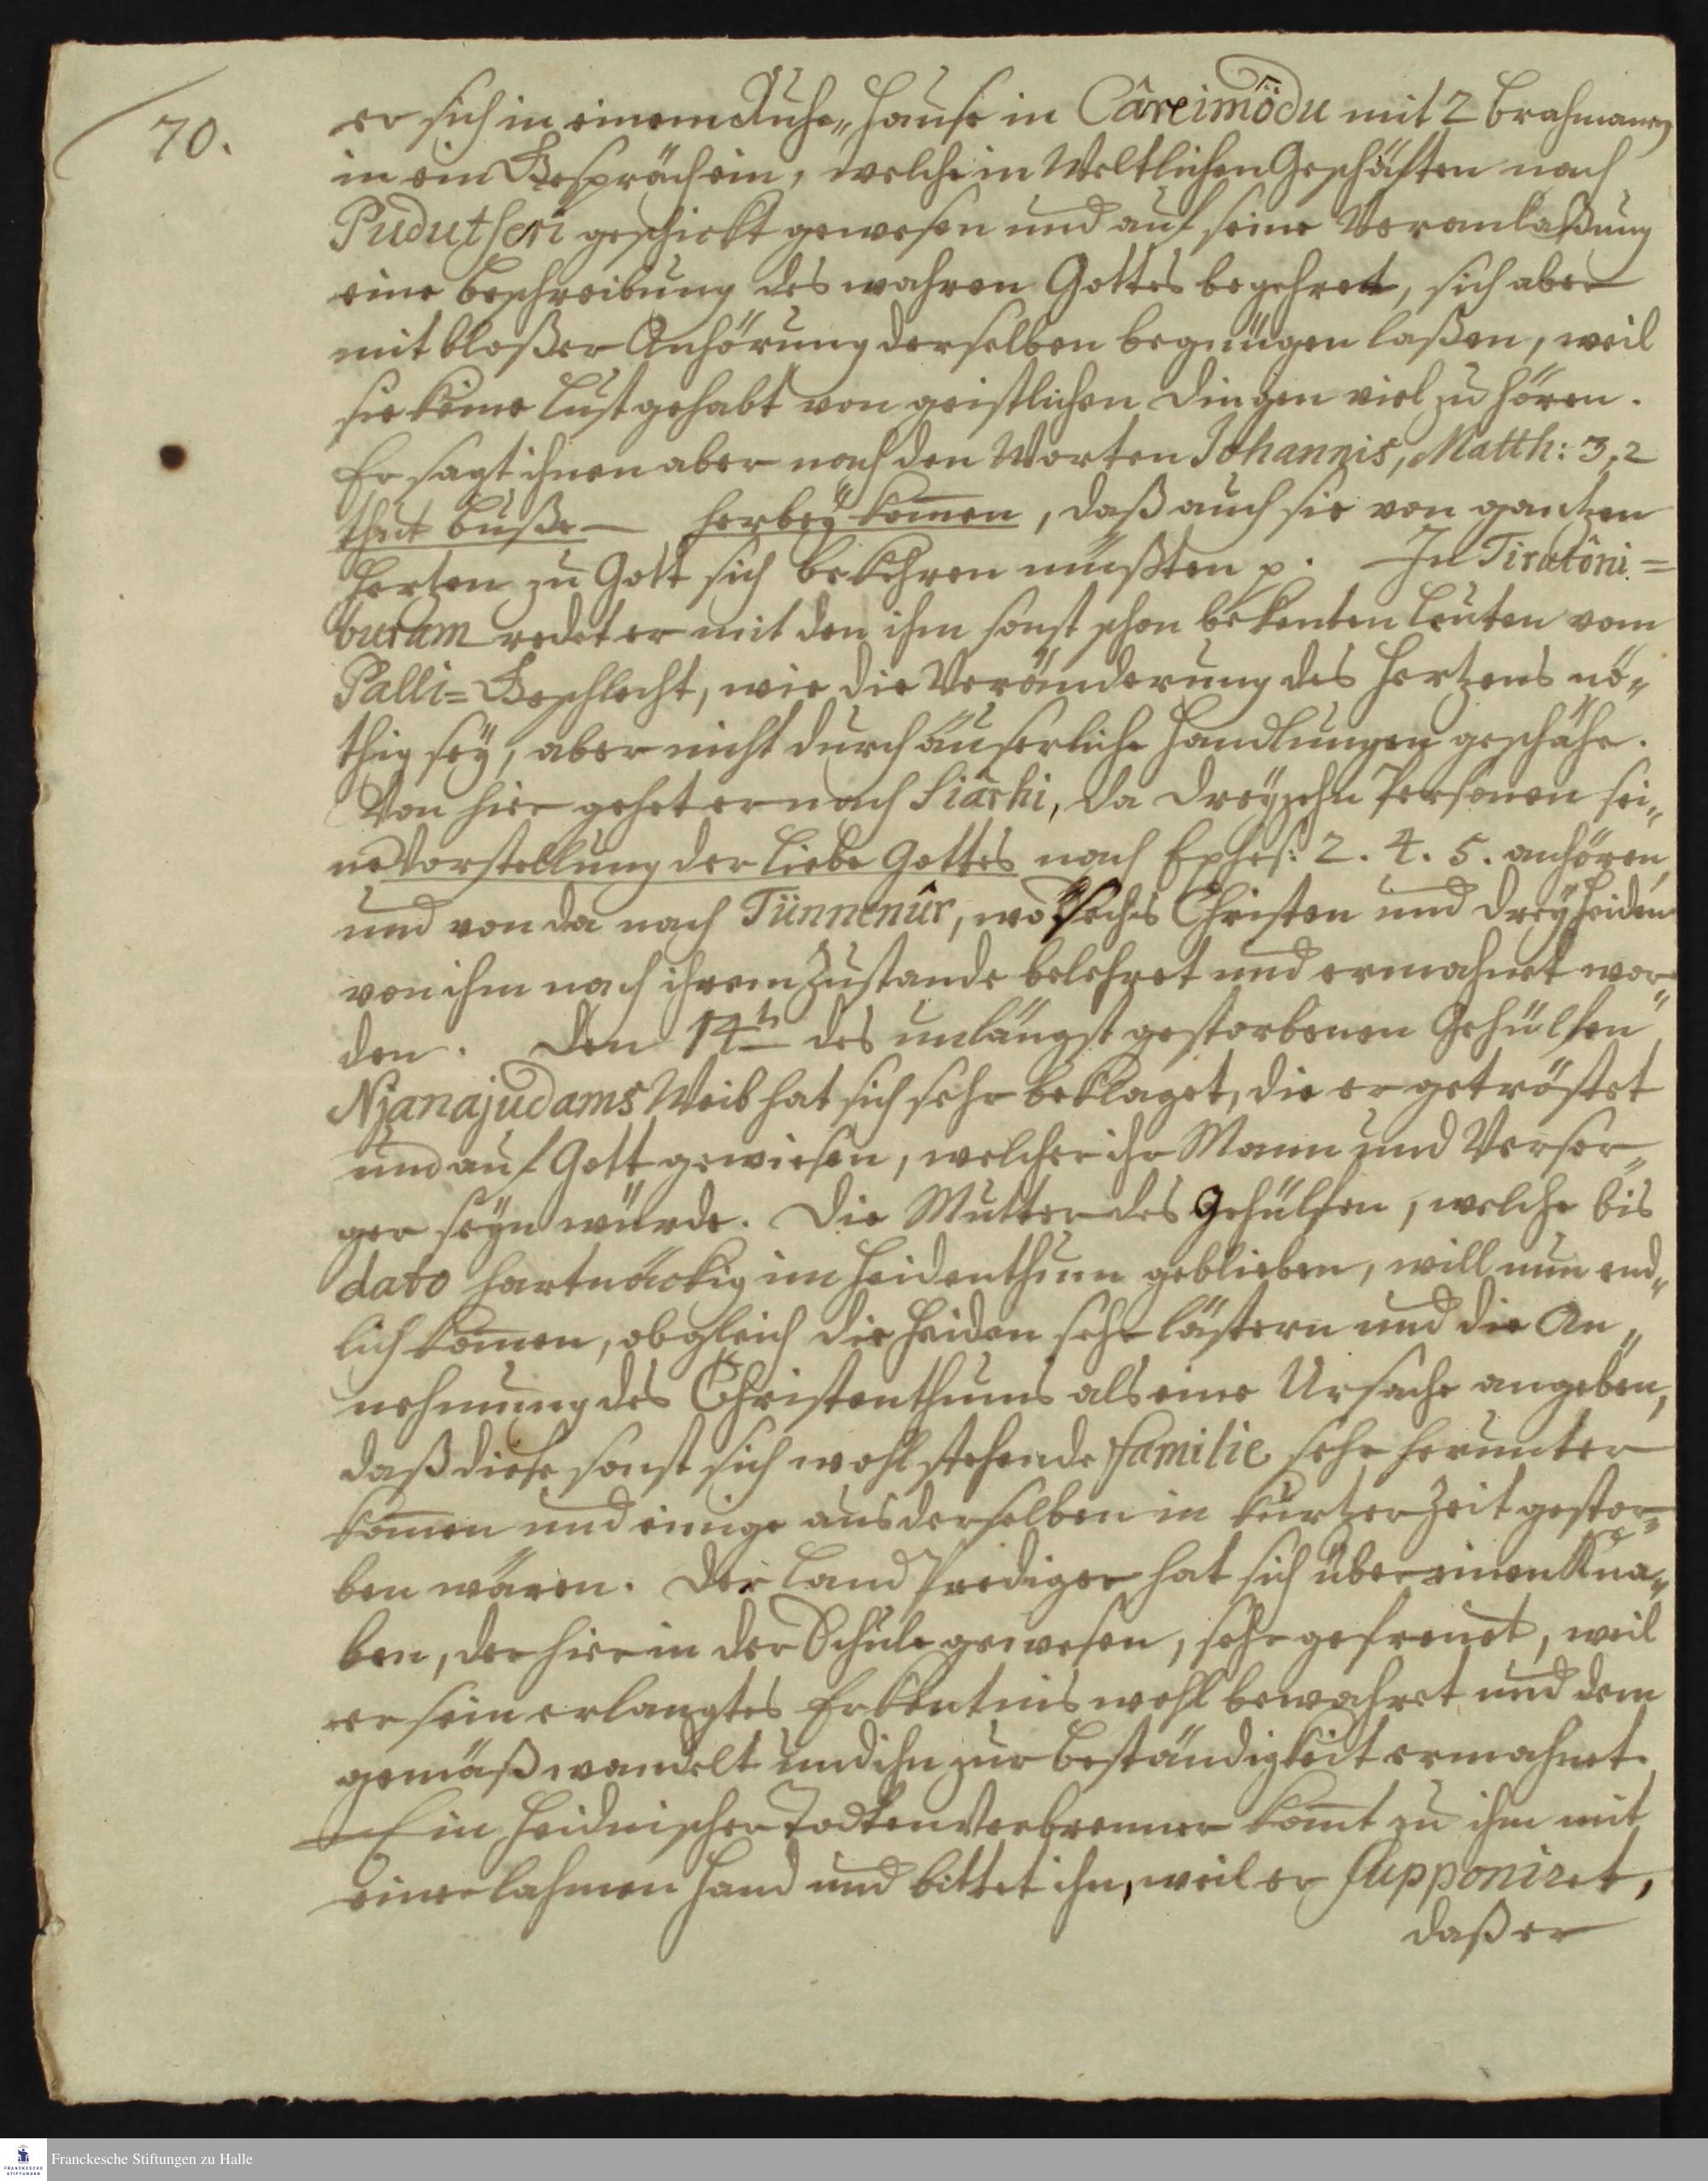 70.
er sich in einem Ruhe„Hause in Câreimôdu mit 2 Brahmanen
in ein Gespräch ein, welche in Weltlichen Geschäften nach
Pudutscheri geschickt gewesen und auf seine Veranlaßung
eine beschreibung des wahren Gottes begehret, sich aber
mit bloßer Anhörung derselben begnügen laßen, weil
sie keine Lust gehabt von geistlichen Dingen viel zu hören.
Er sagt ihnen aber nach den Worten Johannis, Matth: 3,2
thut buße — herbey kom̄en, daß auch sie von gantzen
Hertzen zu Gott sich bekehren müßten p. In Tiratôni=
buram redet er mit den ihm sonst schon bekenten Leuten vom
Palli=Geschlecht, wie die Veränderung des Hertzens nö„
thig sey, aber nicht durch äuserliche Handlungen geschähe.
Von hier gehet er nach Siârhi, da dreyzehn Personen sei„
ne Vorstellung der Liebe Gottes nach Ephes: 2. 4. 5. anhören,
und von da nach Tünnenûr, wo sechs Christen und drey Heiden
von ihm nach ihrem Zustande belehret und ermahnet wor„
den. Den 14tn des unlängst gestorbenen Gehülfen
Njanajudams Weib hat sich sehr beklaget, die er getröstet
und auf Gott gewiesen, welcher ihr Mann und Versor„
ger seyn würde. Die Mutter des Gehülfen, welche bis
dato hartnäckig im Heidenthum geblieben, will nun end„
lich kom̄en, obgleich die Heiden sehr lästern und die An„
nehmung des Christenthums als eine Ursache angeben,
daß diese sonst sich wohl stehende Familie sehr herunter
kom̄en und einige aus derselben in kurtzer Zeit gestor„
ben wären. Der Land Prediger hat sich über einen Kna„
ben, der hier in der Schule gewesen, sehr gefreuet, weil
er sein erlangtes Erkentnis wohl bewahret und dem
gemäß wandelt und ihn zur beständigkeit ermahnet.
Ein Heidnischer Todten Verbrenner kom̄t zu ihm mit
einer lahmen Hand und bittet ihn, weil er supponiret,
daß er
FRANCKESCHE STIFTUNGEN
Franckesche Stiftungen zu Halle